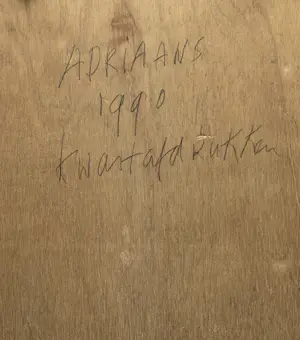 ADRIAANS
1990
Kwartafdrukken